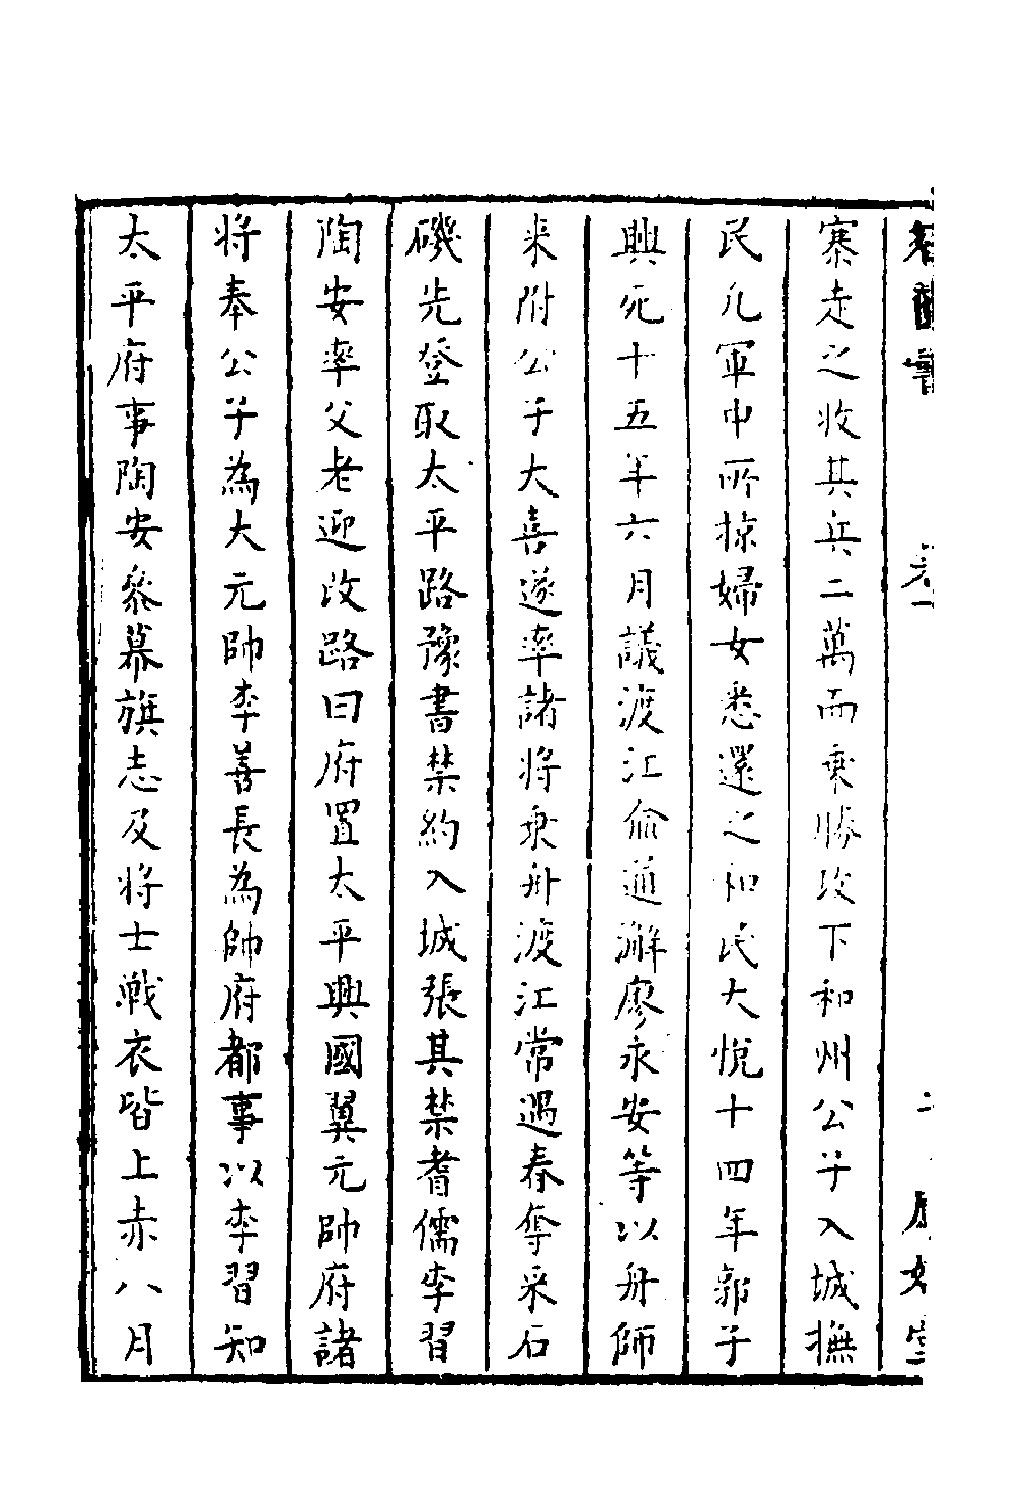 寨走之收其兵二萬而乗勝攻下和州公子入城撫
民凡軍中所掠婦女悉還之和民大悅十四年郭子
興死十五年六月議渡江俞通澥廖永安等以舟師
来附公子大喜遂率諸将乗舟渡江常遇春奪采石
磯先登取太平路豫書禁約入城張其禁耆儒李習
陶安率父老迎改路曰府置太平興國翼元帥府諸
将奉公子為大元帥李善長為帥府都事以李習知
太平府事陶安叅幕旗志及将士戦衣皆上赤八月